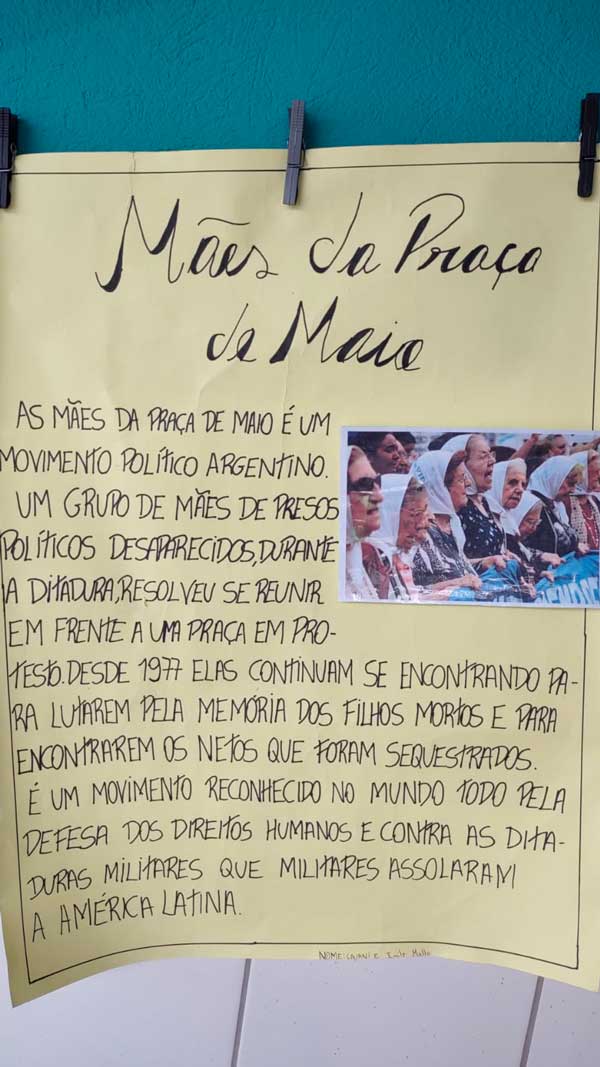 Mães da Praça
de Maio
AS MÃES DA PRAÇA DE MAIO É UM
MOVIMENTO POLÍTICO ARGENTINO.
UM GRUPO DE MÃES DE PRESOS
POLÍTICOS DESAPARECIDOS, DURANTE
A DITADURA, RESOLVEU SE REUNIR
EM FRENTE A UMA PRAÇA EM PRO-
TESTO. DESDE 1977 ELAS CONTINUAM SE ENCONTRANDO PA-
RA LUTAREM PELA MEMÓRIA DOS FILHOS MORTOS E PARA
ENCONTRAREM OS NETOS QUE FORAM SEQUESTRADOS.
É UM MOVIMENTO RECONHECIDO NO MUNDO TODO PELA
DEFESA DOS DIREITOS HUMANOS E CONTRA AS DITA-
DURAS MILITARES QUE MILITARES ASSOLARAM
A AMÉRICA LATINA.
NOME: